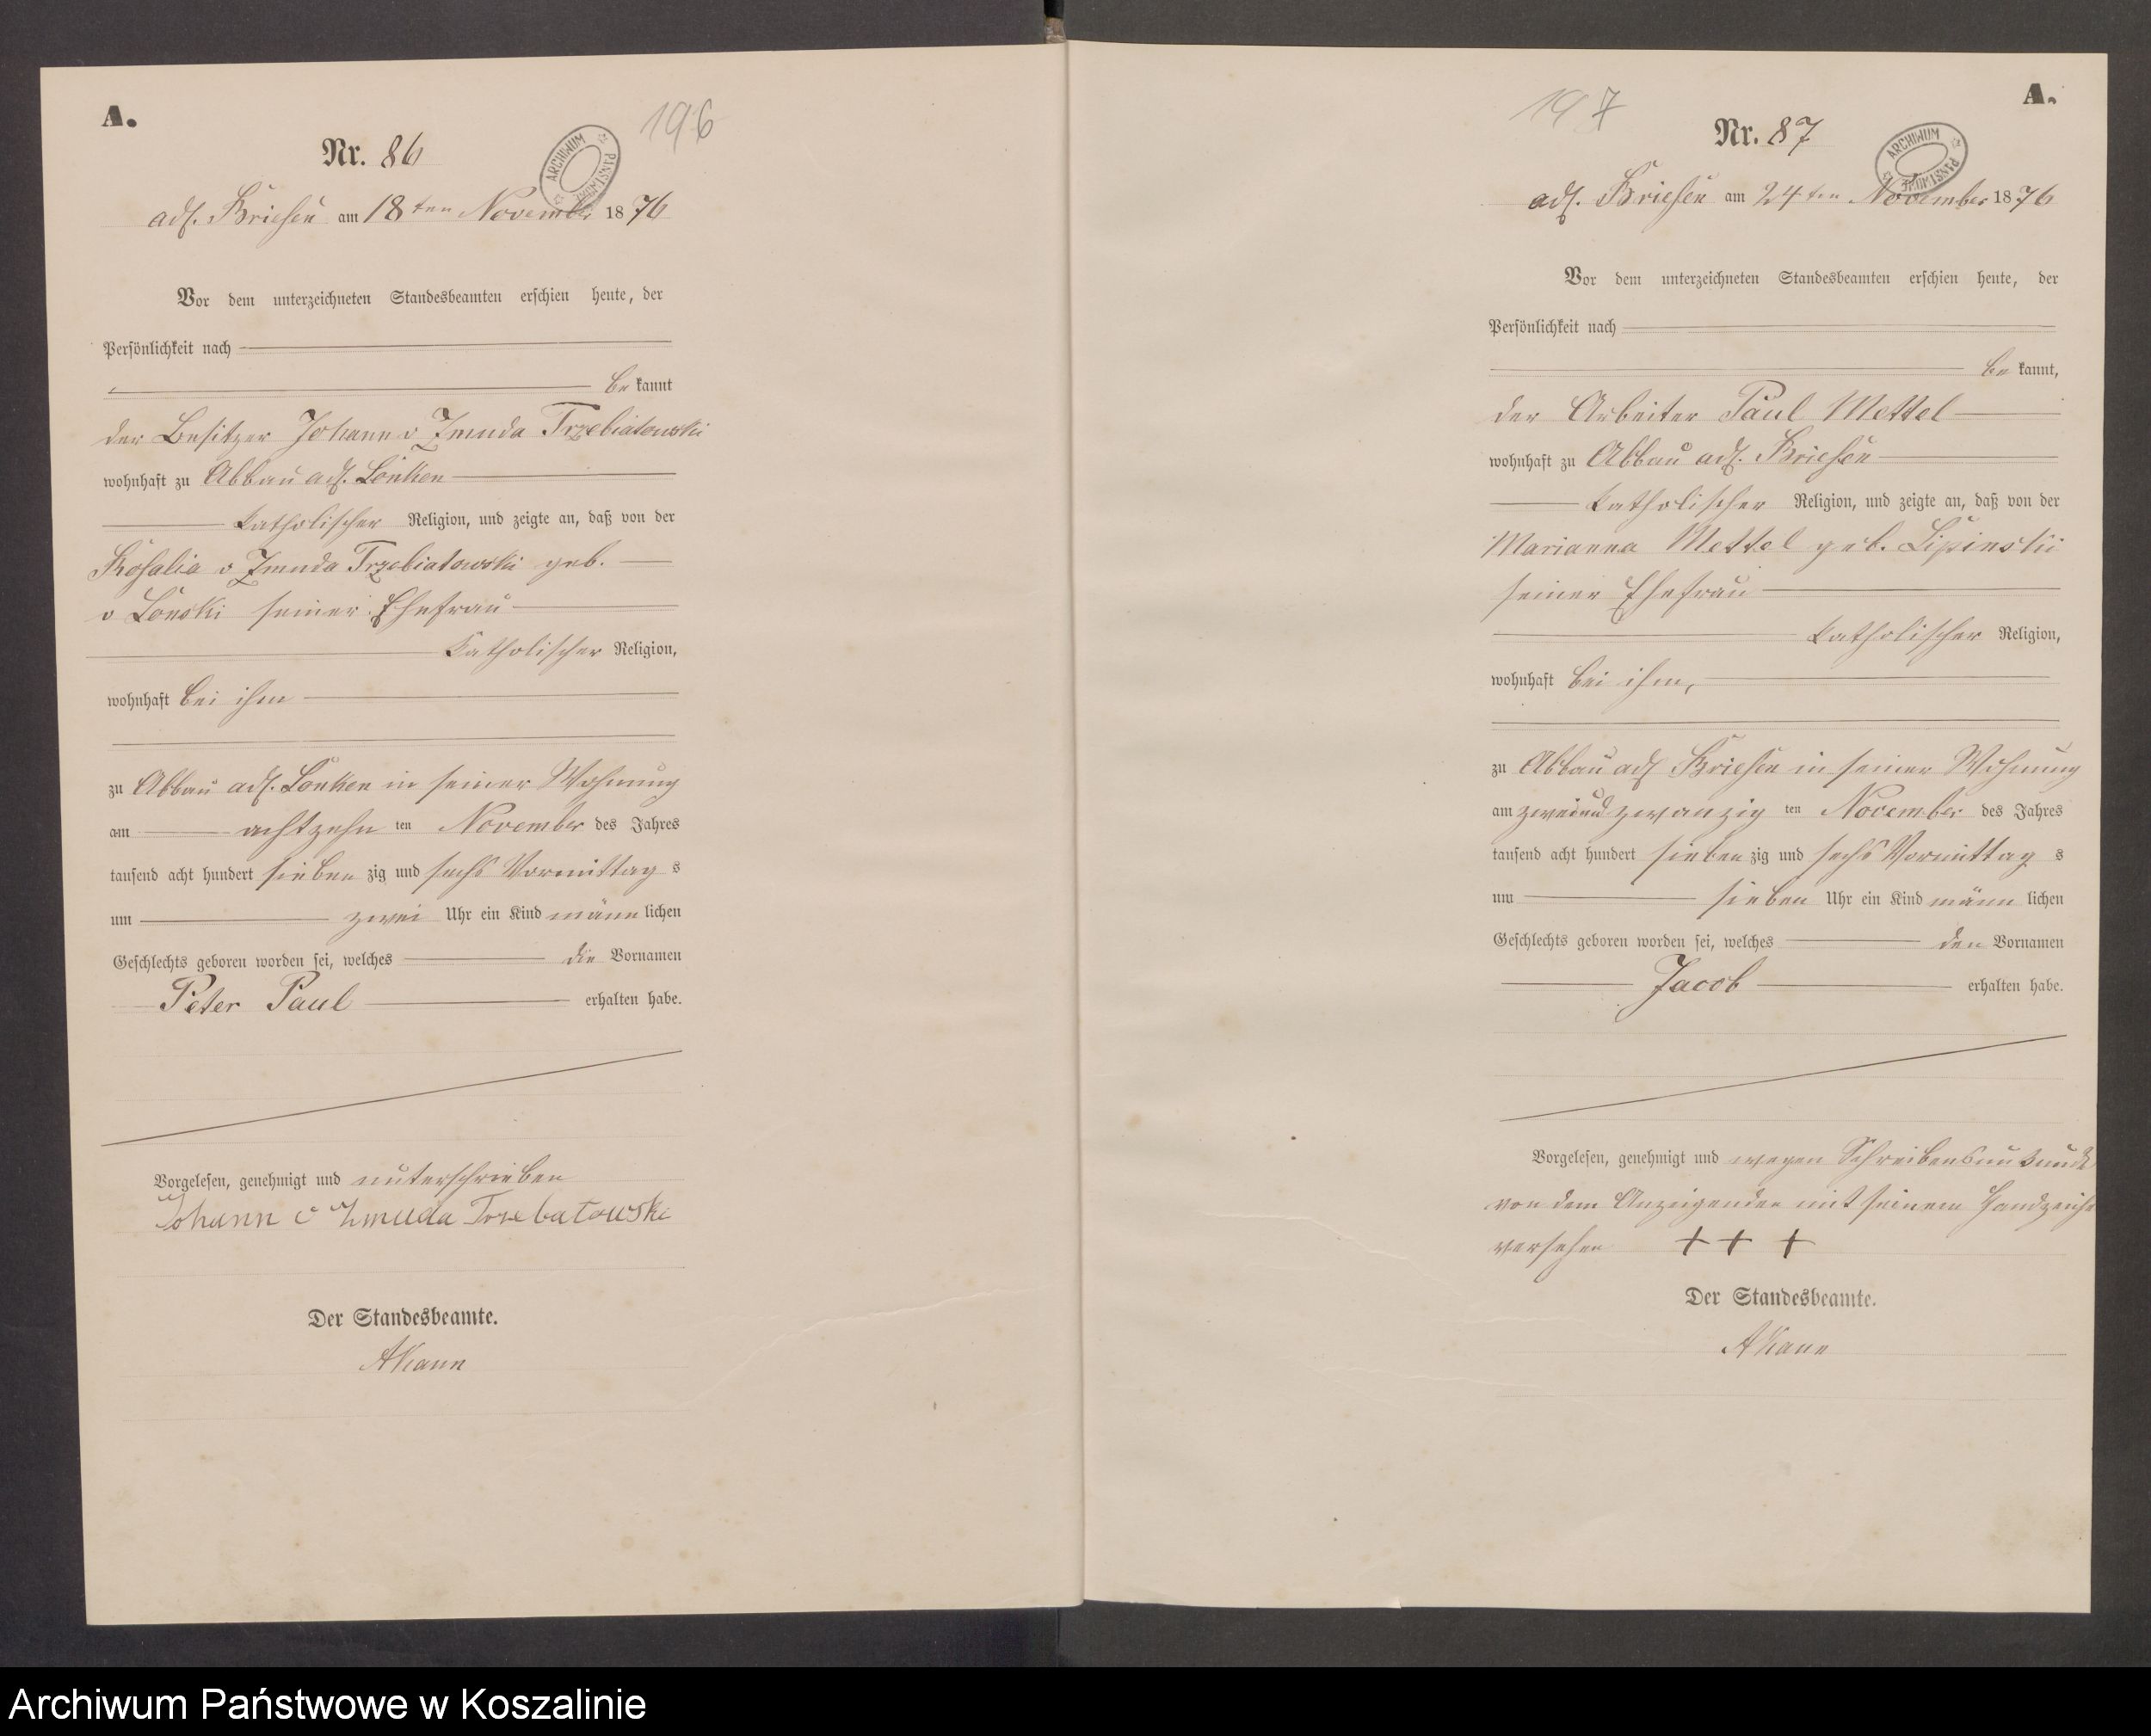 A.
196
Nr. 86
ARCHIWUM PAŃSTWOWE
adl. Briesen am 18ten November 1876
Vor dem unterzeichneten Standesbeamten erschien heute, der
Persönlichkeit nach
be kannt
der Besitzer Johann v Zmuda Trzebiatowski
wohnhaft zu Abbau adl. Lonken
katholischer Religion, und zeigte an, daß von der
Rosalia v Zmuda Trzebiatowski geb.
v Lonski seiner Ehefrau
katholischer Religion,
wohnhaft bei ihm
zu Abbau adl. Lonken in seiner Wohnung
am achtzehn ten November des Jahres
tausend acht hundert sieben zig und sechs Vormittag s
um zwei Uhr ein Kind männ lichen
Geschlechts geboren worden sei, welches die Vornamen
Peter Paul erhalten habe.
Vorgelesen, genehmigt und unterschrieben
Johann v Zmuda Trzebatowski
Der Standesbeamte.
AKann
A.
197
Nr. 87
ARCHIWUM PAŃSTWOWE
adl. Briesen am 24ten November 1876
Vor dem unterzeichneten Standesbeamten erschien heute, der
Persönlichkeit nach
be kannt,
der Arbeiter Paul Mettel
wohnhaft zu Abbau adl. Briesen
katholischer Religion, und zeigte an, daß von der
Marianna Mettel geb. Lipinski
seiner Ehefrau
katholischer Religion,
wohnhaft bei ihm,
zu Abbau adl Briesen in seiner Wohnung
am zweiundzwanzig ten November des Jahres
tausend acht hundert sieben zig und sechs Vormittag s
um sieben Uhr ein Kind männ lichen
Geschlechts geboren worden sei, welches den Vornamen
Jacob erhalten habe.
Vorgelesen, genehmigt und wegen Schreibensunkunde
von dem Anzeigenden mit seinem Handzeichen
versehen + + +
Der Standesbeamte.
AKann
Archiwum Państwowe w Koszalinie